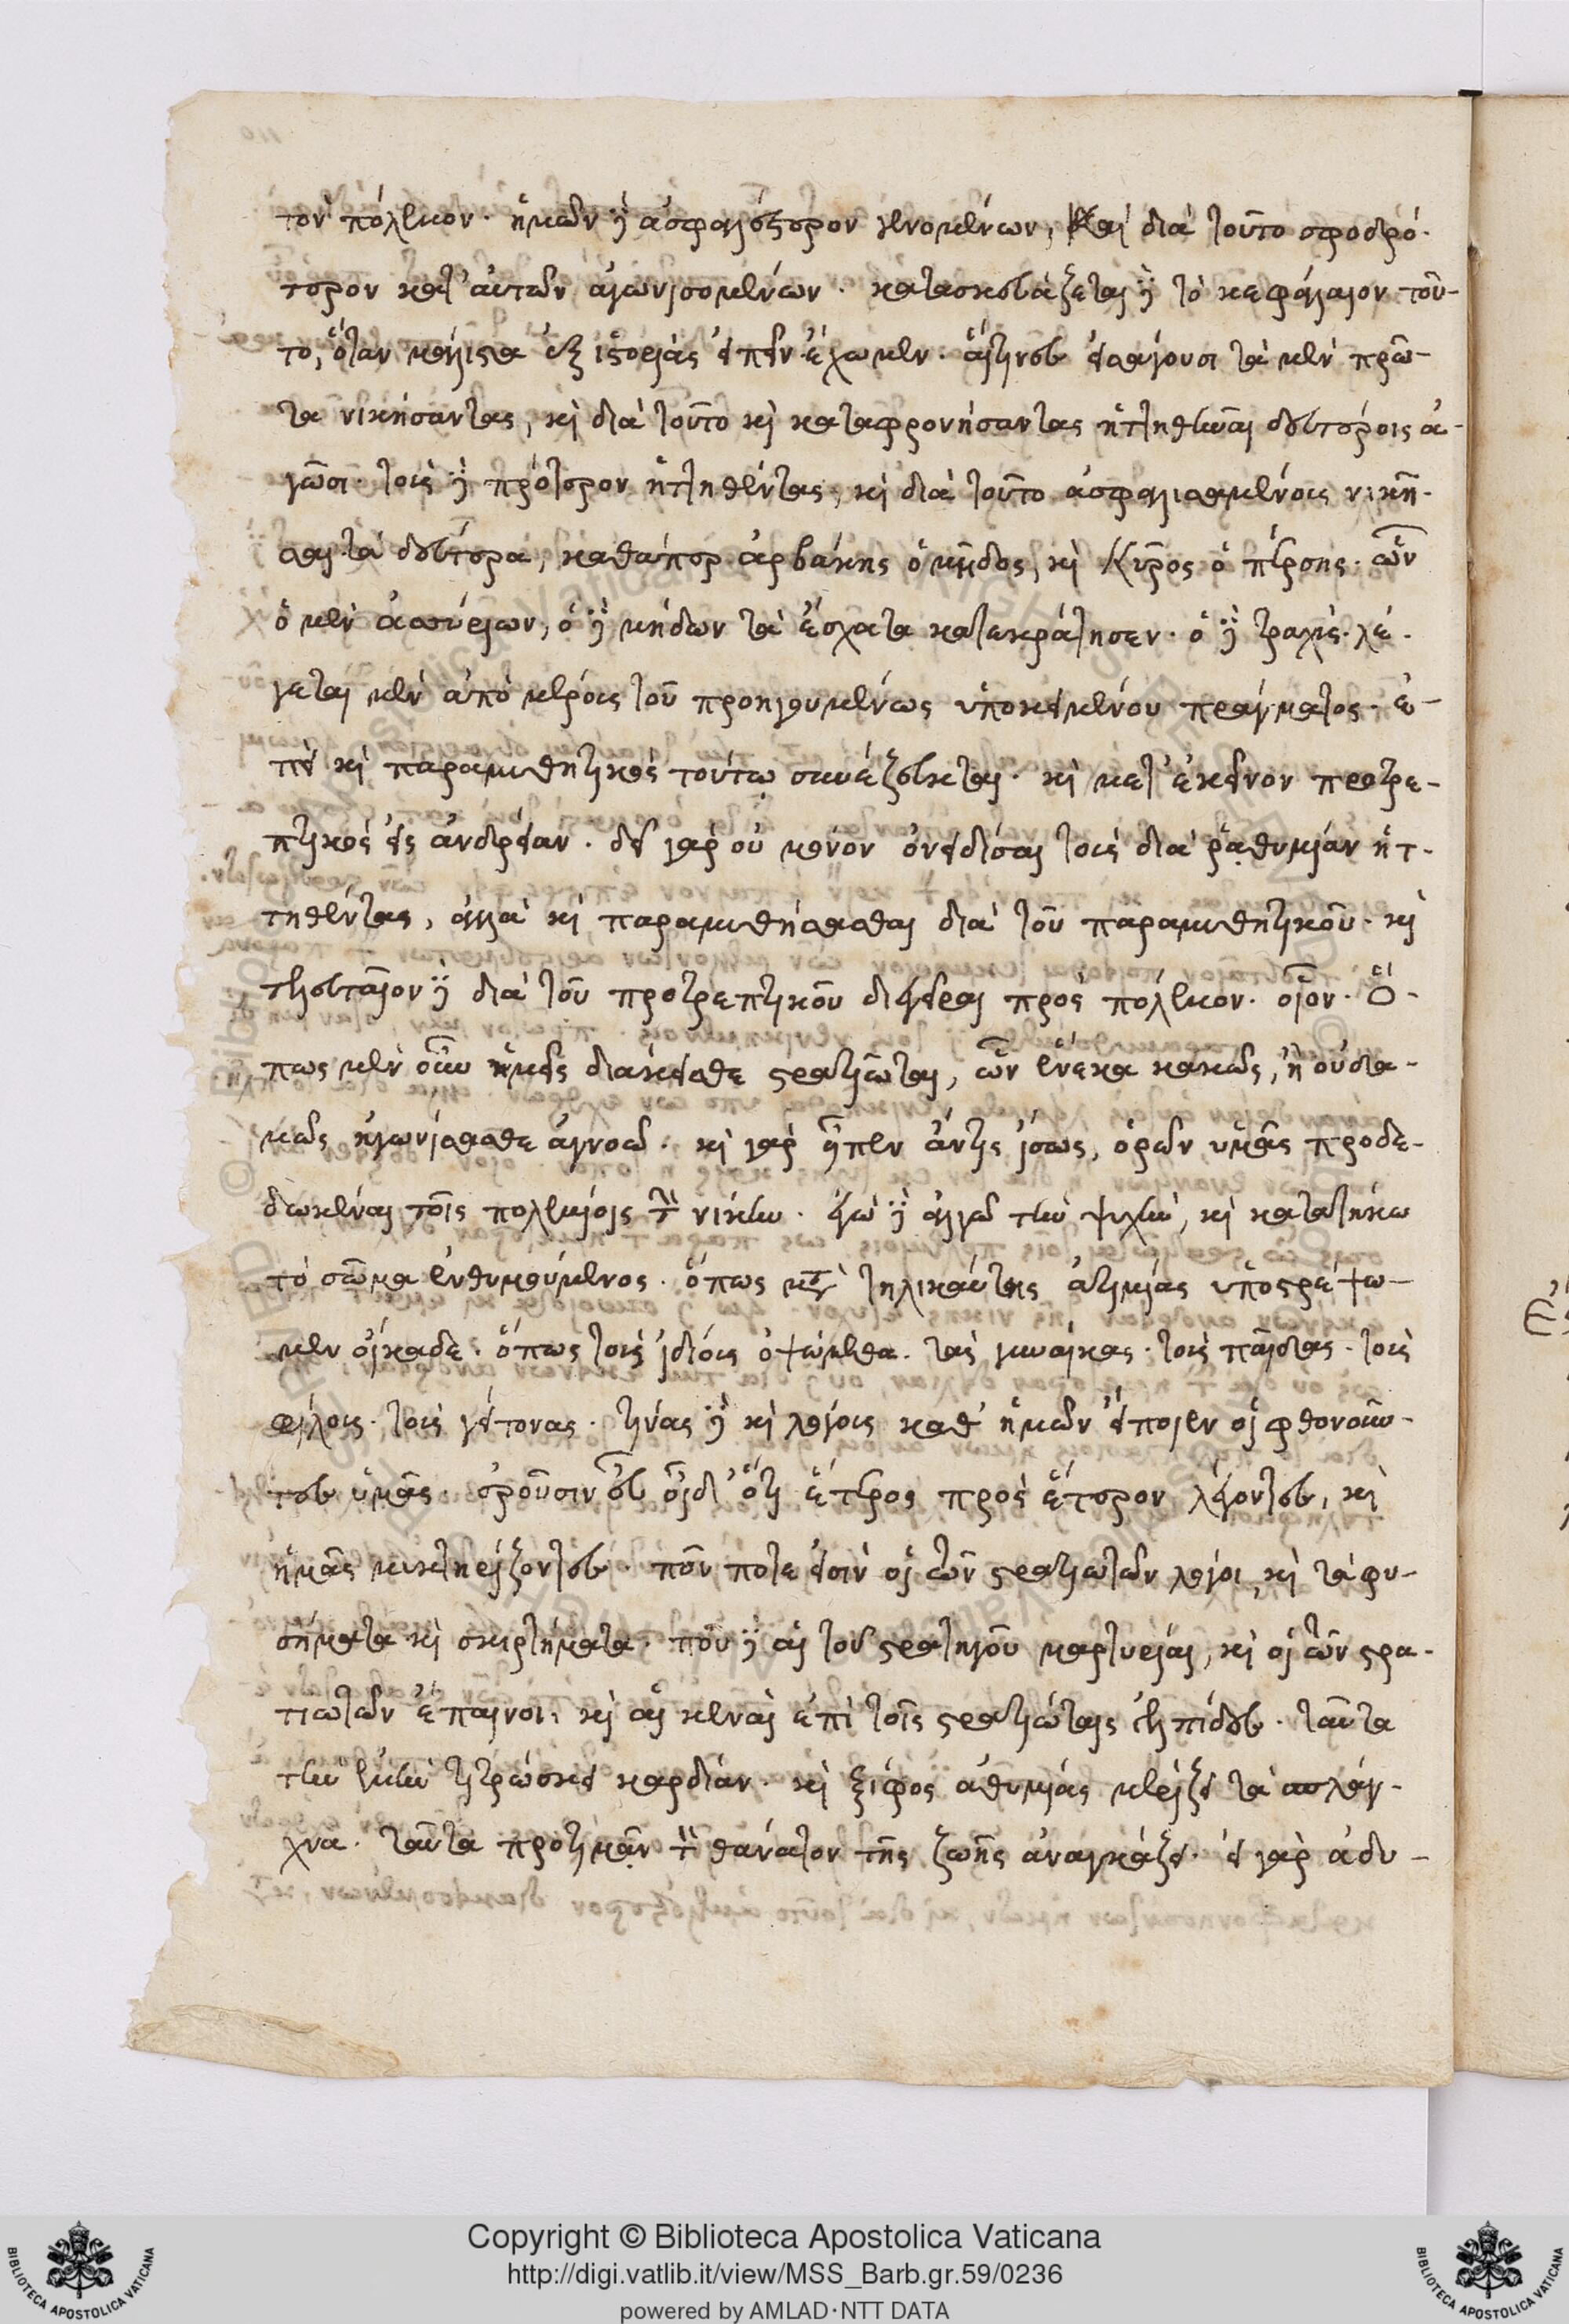 τὸν πόλεμον· ἡμῶν δὲ ἀσφαλέστερον γενομένων, καὶ διὰ τοῦτο σφοδρό-
τερον κατ' αὐτῶν ἀγωνισομένων· κατασκευάζεται δὲ τὸ κεφάλαιον τοῦ-
το, ὅταν μάλιστα ἐξ ἱστορίας εἰπεῖν ἔχωμεν· αἵτινες εἰσάγουσι τὰ μὲν πρῶ-
τα νικήσαντας, καὶ διὰ τοῦτο καὶ καταφρονήσαντας ἡττηθῆναι δευτέροις ἀ-
γῶσι· τοὺς δὲ πρότερον ἡττηθέντας, καὶ διὰ τοῦτο ἀσφαλισαμένους νικῆ-
σαι τὰ δεύτερα, καθάπερ ἀρβάκης ὁ μῆδος, καὶ Κῦρος ὁ πέρσης· ὧν
ὁ μὲν ἀσσυρίων, ὁ δὲ μήδων τὰ ἔσχατα κατεκράτησεν· ὁ δὲ τραχὺς λέ-
γεται μὲν ἀπὸ μέρους τοῦ προηγουμένως ὑποκειμένου πράγματος· ἐ-
πεὶ καὶ παραμυθητικὸς τούτῳ συνέζευκται· καὶ μετ' ἐκεῖνον προτρε-
πτικὸς εἰς ἀνδρείαν· δεῖ γὰρ οὐ μόνον ὀνειδίσαι τοὺς διὰ ῥαθυμίαν ἡτ-
τηθέντας, ἀλλὰ καὶ παραμυθήσασθαι διὰ τοῦ παραμυθητικοῦ· καὶ
τελευταῖον δὲ διὰ τοῦ προτρεπτικοῦ διεγεῖραι πρὸς πόλεμον· οἷον· ὅ-
πως μὲν οὖν ἡμεῖς διάκεισθε στρατιῶται, ὧν ἕνεκα κακῶς, ἢ οὐδα-
μῶς ἠγωνίσασθε ἀγνοῶ· καὶ γὰρ εἶπεν ἄν τις ἴσως, ὁρῶν ὑμᾶς προδε-
δωκέναι τοῖς πολεμίοις τὴν νίκην· ἐγὼ δὲ ἀλγῶ τὴν ψυχὴν, καὶ κατατήκω
τὸ σῶμα ἐνθυμούμενος· ὅπως μετὰ τηλικαύτης ἀτιμίας ὑποστρέψω-
μεν οἴκαδε· ὅπως τοὺς ἰδίους ὀψώμεθα· τὰς γυναίκας· τοὺς παῖδας· τοὺς
φίλους· τοὺς γείτονας· τίνας δὲ καὶ λόγους καθ' ἡμῶν εἴποιεν οἱ φθονοῦν-
τες ὑμᾶς· ἐροῦσιν εὖ οἶδ' ὅτι ἕτερος πρὸς ἕτερον λέγοντες, καὶ
ἡμᾶς μυκτηρίζοντες· ποῦ ποτε εἰσὶν οἱ τῶν στρατιωτῶν λόγοι, καὶ τὰ φυ-
σήματα καὶ σκιρτήματα· ποῦ δὲ αἱ τοῦ στρατηγοῦ μαρτυρίαι, καὶ οἱ τῶν στρα-
τιωτῶν ἔπαινοι· καὶ αἱ κεναὶ ἐπὶ τοῖς στρατιώταις ἐλπίδες· ταῦτα
τὴν ἐμὴν τιτρώσκει καρδίαν· καὶ ξίφος ἀθυμίας μερίζει τὰ σπλάγ-
χνα· ταῦτα προτιμᾶν τὸν θάνατον τῆς ζωῆς ἀναγκάζει· εἰ γὰρ ἀδυ-
Copyright © Biblioteca Apostolica Vaticana
http://digi.vatlib.it/view/MSS_Barb.gr.59/0236
powered by AMLAD·NTT DATA